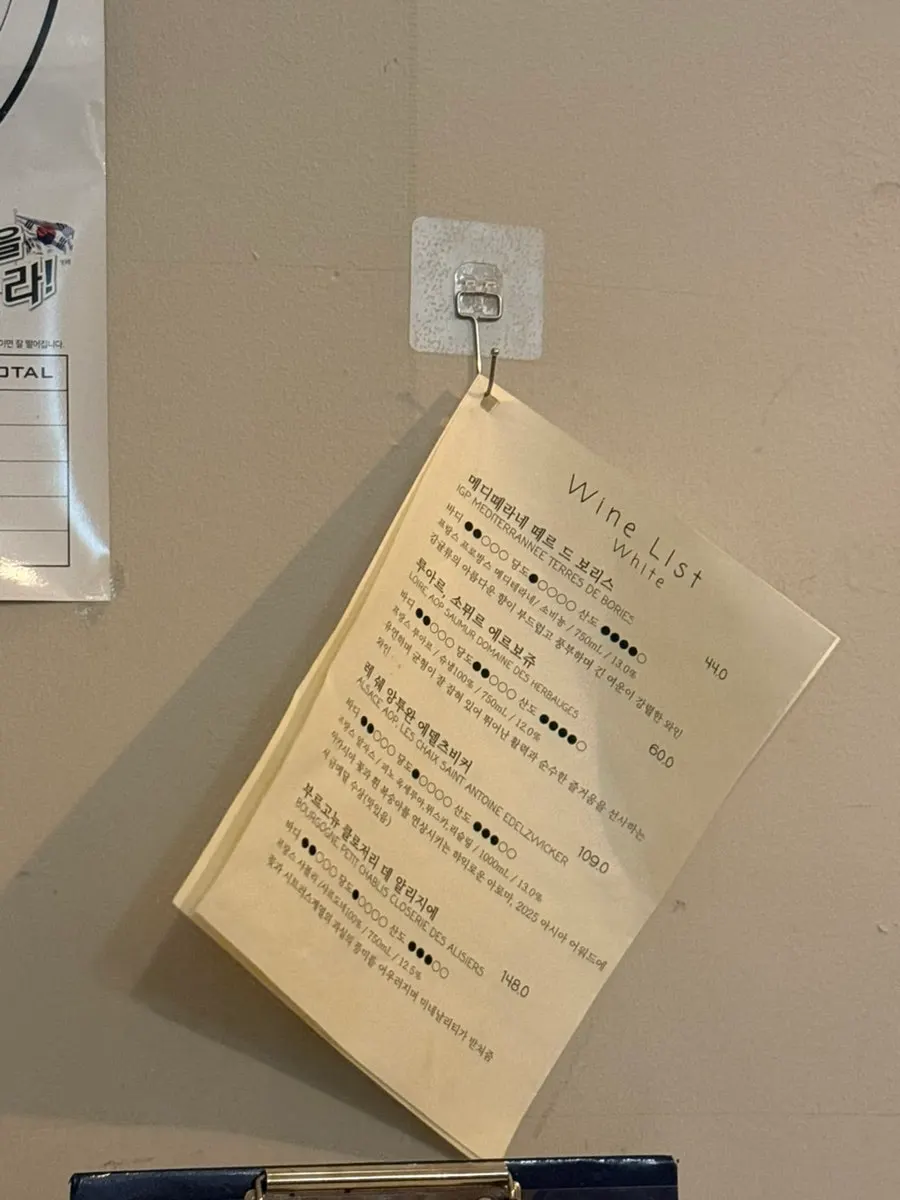 을
라!
이면 잘 떨어집니다.
OTAL
Wine List
White
메디떼라네 떼르 드 보리스
IGP MEDITERRANNEE TERRES DE BORIES 44.0
바디 ●●○○○ 당도●○○○○ 산도 ●●●●○
프랑스 프로방스 메디테라네/ 소비뇽 / 750mL / 13.0%
감귤류의 아름다운 향이 부드럽고 풍부하며 긴 여운이 강렬한 와인
투아르, 소뮈르 에르보쥬
LOIRE AOP SAUMUR DOMAINE DES HERBAUGES 60.0
바디 ●●○○○ 당도●●○○○ 산도 ●●●●○
프랑스 루아르 / 슈냉100% / 750mL / 12.0%
유연하며 균형이 잘 잡혀 있어 뛰어난 활력과 순수한 즐거움을 선사하는
와인
레 쉐 앙투완 에델츠비커
ALSACE AOP, LES CHAIX SAINT ANTOINE EDELZWICKER 109.0
바디 ●●○○○ 당도●○○○○ 산도 ●●●○○
프랑스 알자스 / 피노 옥세루아,뮈스카,리슬링 / 1000mL / 13.0%
아카시아 꽃과 흰 복숭아를 연상시키는 향긋로운 아로마, 2025 아시아 어워드에
서 금메달 수상(맛있음)
부르고뉴 클로저리 데 알리지에
BOURGOGNE, PETIT CHABLIS CLOSERIE DES ALISIERS 148.0
바디 ●●○○○ 당도●○○○○ 산도 ●●●○○
프랑스 샤블리 /샤르도네100% / 750mL / 12.5%
꽃과 시트러스계열의 과실의 풍미를 어우러지며 미네랄리티가 받쳐줌